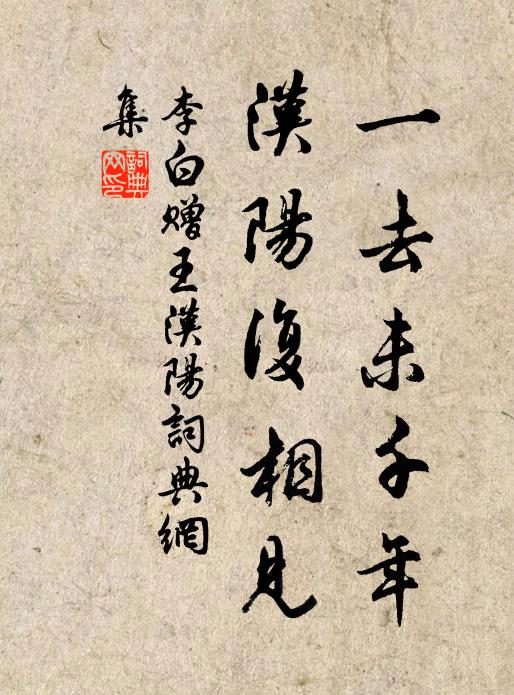 一去未千年
漢陽復相見
李白贈王漢陽詞典網
集
詞典
网印